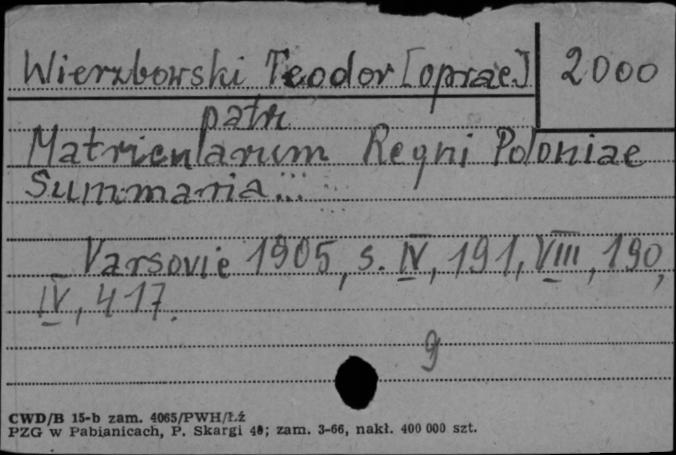 Wierzbowski Teodor [oprac] 2000
patr
Matricularum Regni Poloniae
Summaria...
Varsovie 1905, s. IV, 191, VIII, 190,
IV, 417.
9
CWD/B 15-b zam. 4065/PWH/Łź
PZG w Pabianicach, P. Skargi 40; zam. 3-66, nakł. 400 000 szt.